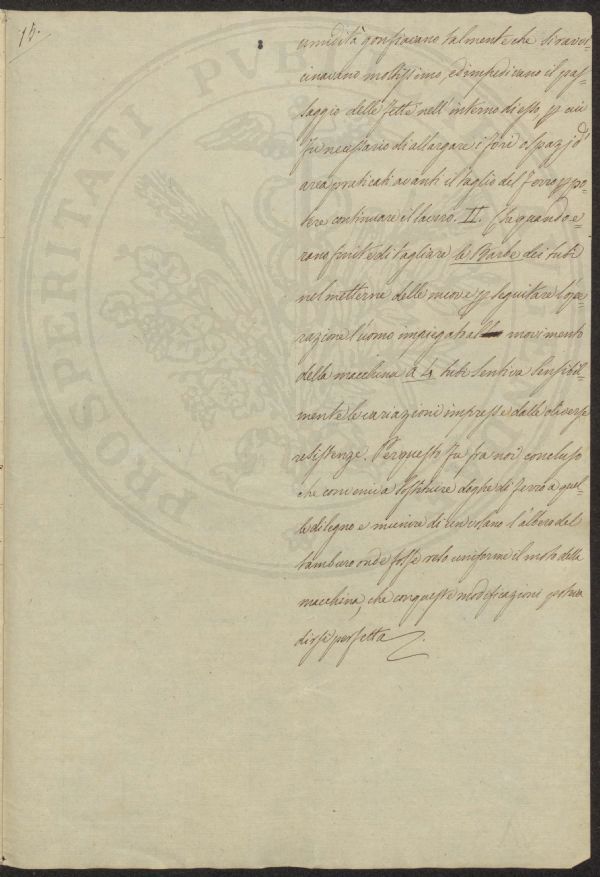 15.
PROSPERITATI PVBLICAE
umidità gonfiavano talmente che si ravvi-
cinavano moltissimo, ed impedivano il pas-
saggio delle fette nell'interno di esso, p cui
fu necessario di allargare i fori o spazj d'
area praticati avanti il taglio del ferro p po-
tere continuare il lavoro. II. Che quando e-
rano finite di tagliare le Barbe dei tubi
nel metterne delle nuove p seguitare l'ope-
razione l'uomo impiegato al movimento
della macchina a 4 tubi sentiva sensibil-
mente le variazioni impresse dalle diverse
resistenze. Per questo fu fra noi concluso
che conveniva sostituire doghe di ferro a quel-
le di legno e munire di un volano l'albero del
tamburo onde fosse reso uniforme il moto della
macchina, che con queste modificazioni poteva
dirsi perfetta.